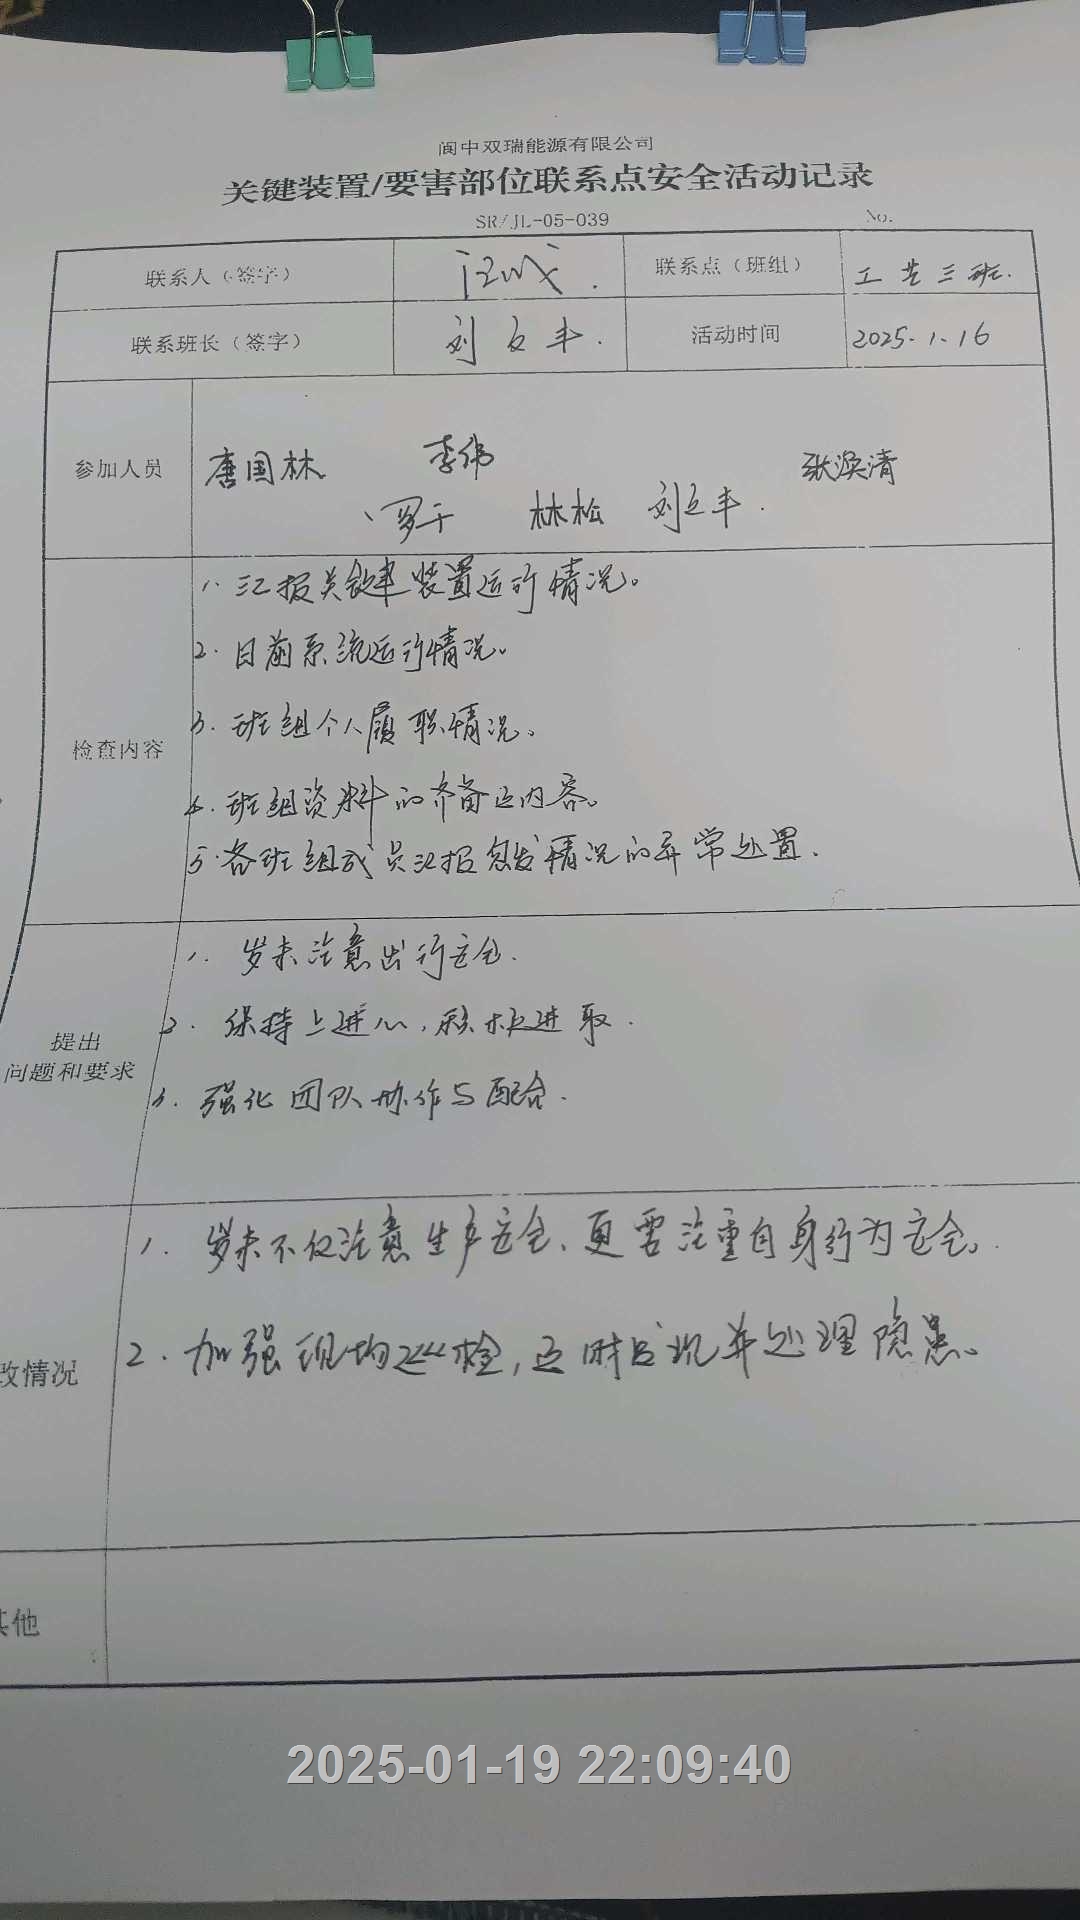 阆中双瑞能源有限公司
关键装置/要害部位联系点安全活动记录
SR/JL-05-039 No.
联系人（签字） 联系点（班组） 工艺三班.
联系班长（签字） 刘立丰. 活动时间 2025.1.16
参加人员 唐国林 李伟 张涣清
罗于 林松 刘立丰.
检查内容
1. 汇报关键装置运行情况。
2. 目前系统运行情况。
3. 班组个人履职情况。
4. 班组资料的齐备及内容。
5. 各班组成员汇报突发情况的异常处置.
提出
问题和要求
1. 岁末注意出行安全.
2. 保持上进心,积极进取.
3. 强化团队协作与配合.
改情况
1. 岁末不仅注意生产安全、更需注重自身行为安全。
2. 加强现场巡检,及时发现并处理隐患。
其他
2025-01-19 22:09:40